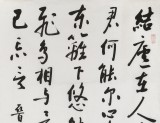 結廬在
君何能尔心
东籬下悠
飛鳥相与
已忘言 晉